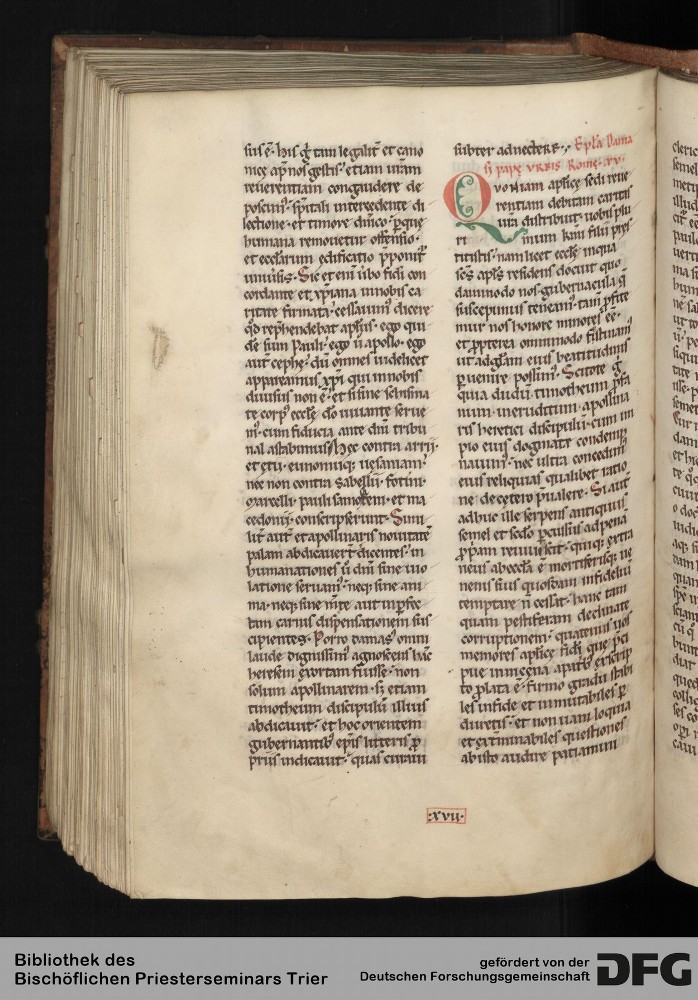 sus ē. his g̃ tam legalit̃ et cano
nice ap̃ nos gestis. etiam ur̃am
reuerentiam congaudere de
poscim᷒. sp̃itali intercedente di
lectione. et timore dñico. ꝑque
humana remouetur offensio.
et eccl̃arum edificatio p̃ponit᷑
unius̃. Sic et enĩ ũbo fidi con
cordante et xp̃iana in nobis ca
ritate firmata. cessauim᷒ dicere
qd̃ rep̃hendebat ap̃lus. ego qui
dē sum Pauli. ego ũ apollo. ego
aut̃ cephe. dũ omnes uidelicet
appareamus xp̃i qui in nobis
diuisus non ē. et si sine scisma
te corp᷒ eccl̃e do uiuante serue
m᷒. cum fiducia ante dñi tribu
nal astabimus. Hec contra arrij.
et ętij. eunomijq; uęsaniam.
nec non contra Sabellij. fotini.
marcelli. pauli samosteñ. et ma
cedonij. conscripserunt. Simi
lit̃ aut̃ et apollinaris nouitatē
palam abdicauer̃t dicentes. in
humanationes ũ dñi sine uio
latione seruam᷒. neq; sine ani
ma. neq; sine m̃te aut inp̃fec
tam carnis dispensationem sus
cipientes. Porro damas᷒ omni
laude dignissim᷒ agnoscens hãc
heresem exortam fuisse. non
solum apollinarem. s; etiam
timotheum discipulũ illius
abdicauit. et hoc orientem
gubernantib᷒ ep̃is litteris ꝓ
priis indicauit. quas curaui
subter adnectere. Ep̃la Dama
si papę urbis Romę. xv.
Quoniam ap̃licę sedi reue
rentiam debitam caritas
ur̃a distribuit. uobis plu
rimum kam̃i filii pres
titistis. nam licet eccl̃e in qua
sc̃s ap̃ls residens docuit quo
dammodo nos gubernacula q̃
suscepimus teneam᷒. tam̃ ꝓfite
mur nos honore minores eē.
et ꝓpterea omnimodo festinam᷒
ut ad gl̃am eius beatitudinis
ꝑuenire possim᷒. Scitote g̃
quia dudũ timotheum ꝓfa
num. ineruditum. apollina
ris heretici discipulũ. cum im
pio eius dogmate condemp
nauim᷒. nec ultra concedim᷒
eius reliquias qualibet ratio
ne de cetero p̃ualere. Si aut̃
adhuc ille serpens antiquus
semel et sc̃do ꝑcussus ad penã
ꝓpriam reuiuiscit. qui q; extra
neus abecclã ē. mortiferisq; ue
nenis suis quosdam infidelium
temptare ñ cessat. hanc tam
quam pestiferam declinate
corruptionem. quatenus uos
memores ap̃licę fidi. que p̃ci
pue in nicena apatrib᷒ exscrip
to ꝓlata ē. firmo gradu stabi
les in fide et inmutabiles ꝑ
duretis. et non uaniloquia
et exterminabiles questiones
abisto audire patiamini
.xvii.
Bibliothek des
Bischöflichen Priesterseminars Trier
gefördert von der
Deutschen Forschungsgemeinschaft
DFG